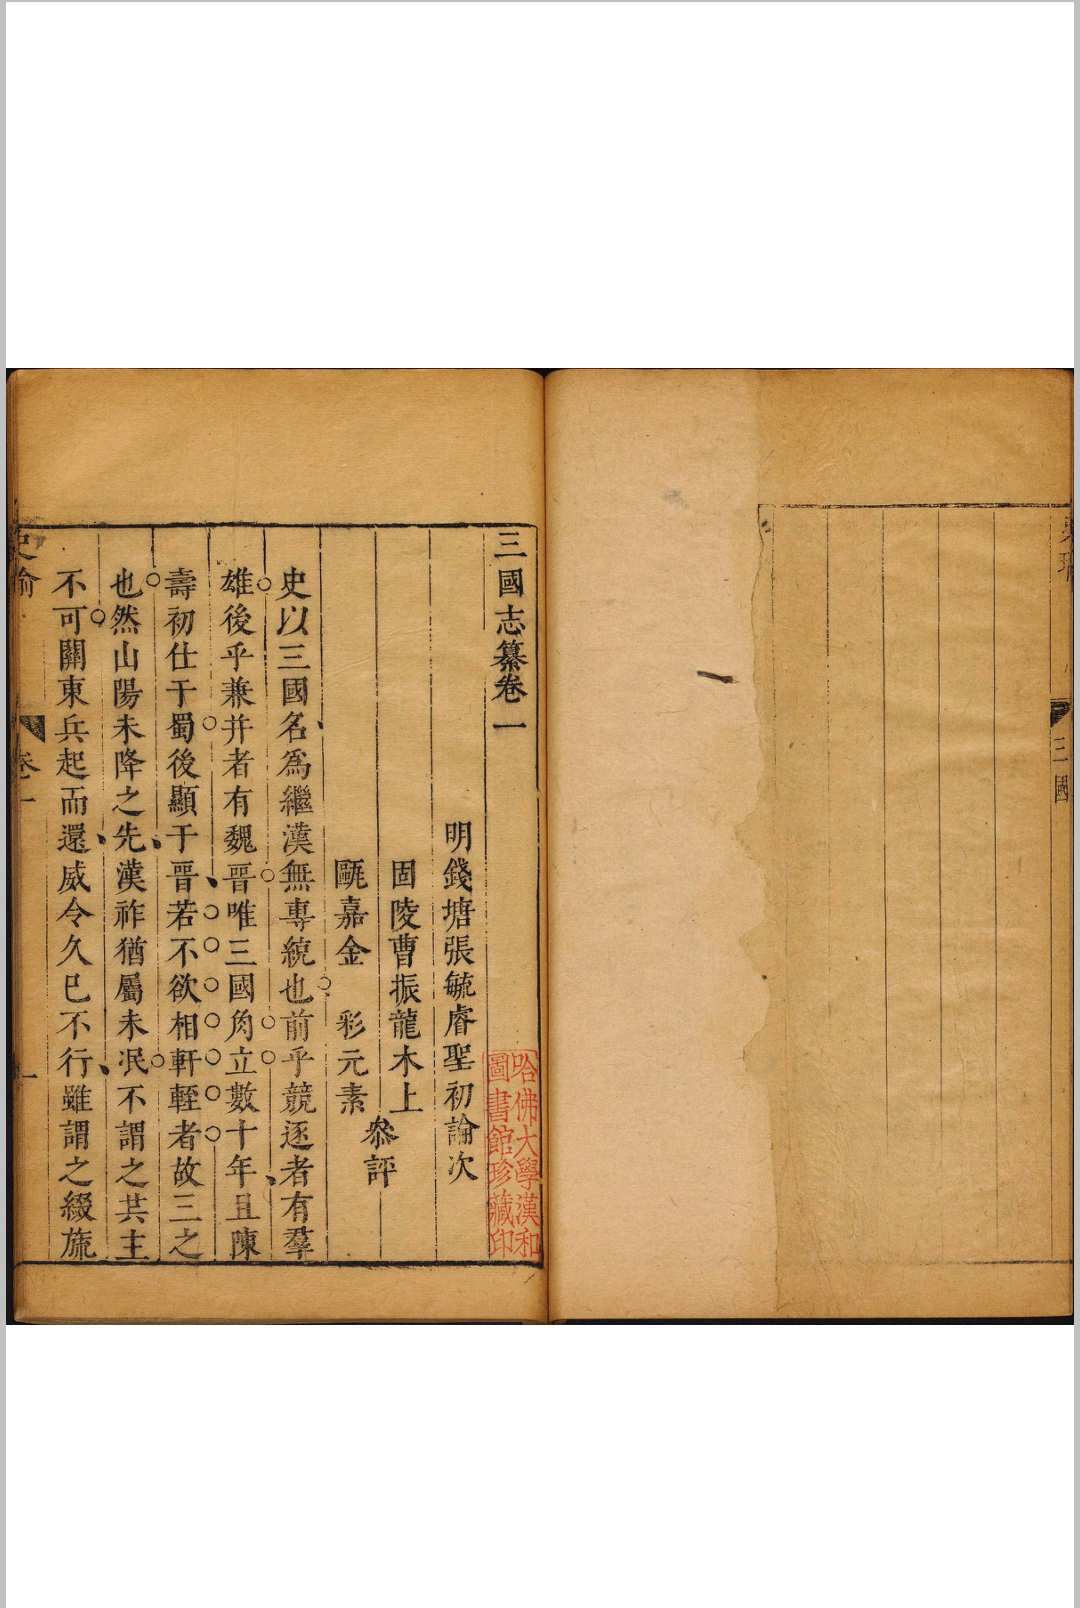 三國
三國志纂卷一
明錢塘張毓睿聖初論次
固陵曹振龍木上
甌嘉金　彩元素
叅評
史以三國名爲繼漢無專統也前乎競逐者有羣
雄後乎兼并者有魏晉唯三國角立數十年且陳
壽初仕于蜀後顯于晉若不欲相軒輊者故三之
也然山陽未降之先漢祚猶屬未冺不謂之共主
不可關東兵起而還威令久已不行雖謂之綴旒
卷一
一
哈佛大學漢和
圖書館珍藏印